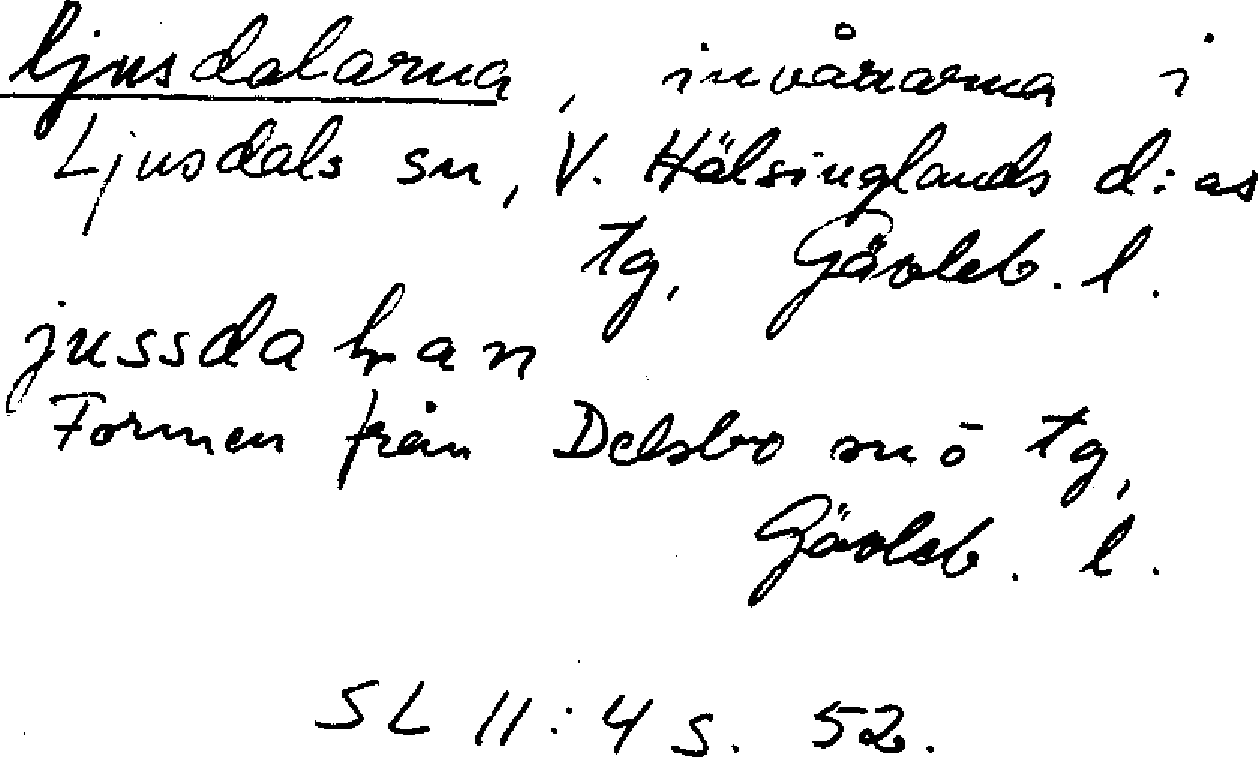 ljusdalarna, invånarna i
Ljusdals sn, V. Hälsinglands d:as
tg, Gävleb. l.
Formen från Delsbo sn o tg,
Gävleb. l.
SL 11:4 s. 52.